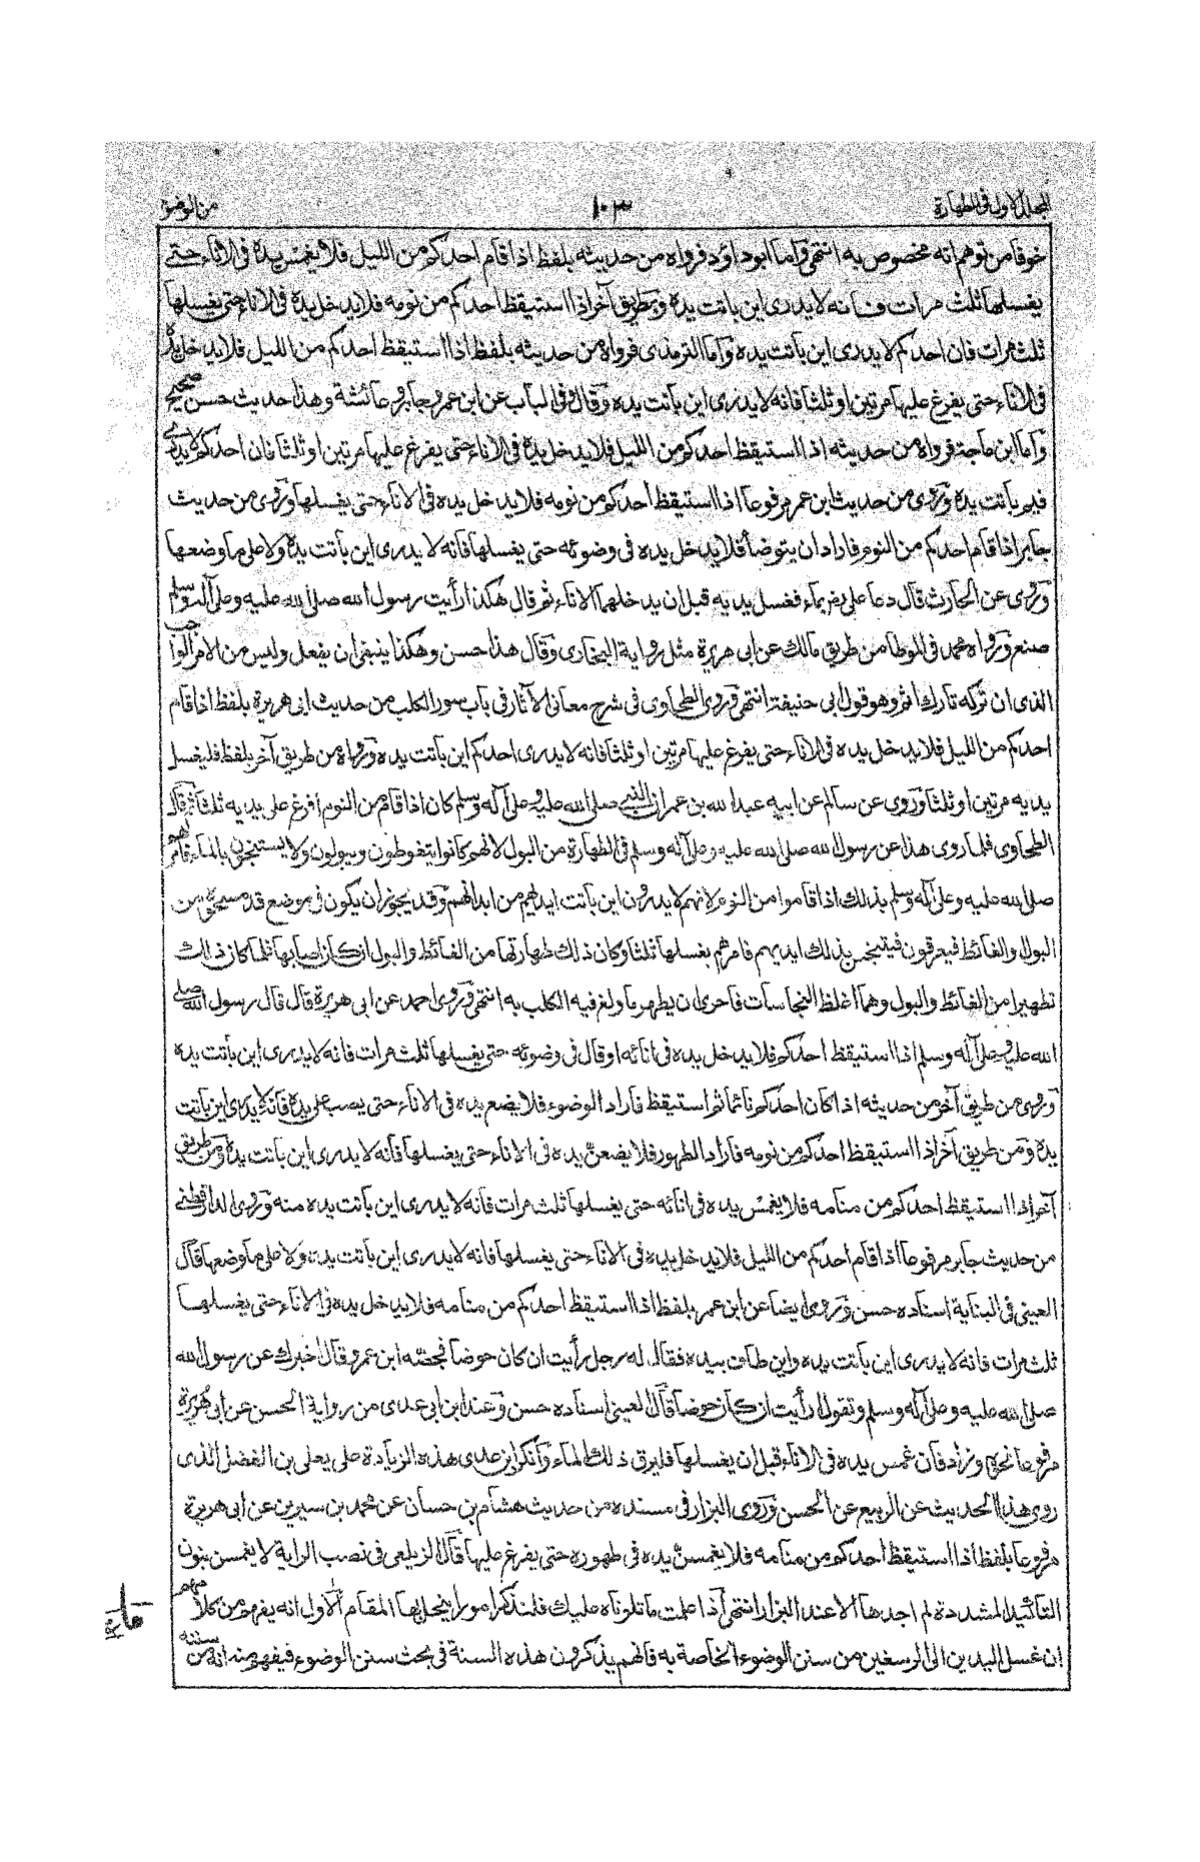 المجلد الاول فى الطهارة
١٠٣
من الوضوء
خوفا من توهم انه مخصوص به انتهى واما ابو داؤد فرواه من حديثه بلفظ اذا قام احدكم من الليل فلا يغمس يده فى الاناء حتى
يغسلها ثلث مرات فانه لا يدرى اين باتت يده وبطريق آخر اذا استيقظ احدكم من نومه فلا يدخل يده فى الاناء حتى يغسلها
ثلث مرات فان احدكم لا يدرى اين باتت يده واما الترمذى فرواه من حديثه بلفظ اذا استيقظ احدكم من الليل فلا يدخل يده
فى الاناء حتى يفرغ عليها مرتين او ثلثا فانه لا يدرى اين باتت يده وقال وفى الباب عن ابن عمر وجابر وعائشة وهذا حديث حسن صحيح
واما ابن ماجة فرواه من حديثه اذا استيقظ احدكم من الليل فلا يدخل يده فى الاناء حتى يفرغ عليها مرتين او ثلثا فان احدكم لا يدرى
فيم باتت يده وروى من حديث ابن عمر مرفوعا اذا استيقظ احدكم من نومه فلا يدخل يده فى الاناء حتى يغسلها وروى من حديث
جابر اذا قام احدكم من النوم فاراد ان يتوضأ فلا يدخل يده فى وضوئه حتى يغسلها فانه لا يدرى اين باتت يده ولا على ما وضعها
وروى عن الحارث قال دعا على بماء فغسل يديه قبل ان يدخلهما الاناء ثم قال هكذا رأيت رسول الله صلى الله عليه وعلى آله وسلم
صنع ورواه محمد فى الموطا من طريق مالك عن ابى هريرة مثل رواية البخارى وقال هذا حسن وهكذا ينبغى ان يفعل وليس من الامر الواجب
الذى ان تركه تارك اثم وهو قول ابى حنيفة انتهى وروى الطحاوى فى شرح معانى الآثار فى باب سور الكلب من حديث ابى هريرة بلفظ اذا قام
احدكم من الليل فلا يدخل يده فى الاناء حتى يفرغ عليها مرتين او ثلثا فانه لا يدرى احدكم اين باتت يده ورواه من طريق آخر بلفظ فليغسل
يديه مرتين او ثلثا وروى عن سالم عن ابيه عبد الله بن عمر ان النبى صلى الله عليه وعلى آله وسلم كان اذا قام من النوم افرغ على يديه ثلثا ثم قال
الطحاوى فلما روى هذا عن رسول الله صلى الله عليه وعلى آله وسلم فى الطهارة من البول لانهم كانوا يتغوطون ويبولون ولا يستنجون بالماء فامرهم
صلى الله عليه وعلى آله وسلم بذلك اذا قاموا من النوم لانهم لا يدرون اين باتت ايديهم من ابدانهم وقد يجوز ان يكون فى موضع قد مسحوه من
البول والغائط فيعرقون فيتنجس بذلك ايديهم فامرهم بغسلها ثلثا وكان ذلك طهارتها من الغائط والبول ان كان اصابها فلما كان ذلك
تطهيرا من الغائط والبول وهما اغلظ النجاسات فاحرى ان يطهر ما ولغ فيه الكلب به انتهى وروى احمد عن ابى هريرة قال قال رسول الله صلى
الله عليه وعلى آله وسلم اذا استيقظ احدكم فلا يدخل يده فى انائه او قال فى وضوئه حتى يغسلها ثلث مرات فانه لا يدرى اين باتت يده
وروى من طريق آخر من حديثه اذا كان احدكم نائما ثم استيقظ فاراد الوضوء فلا يضع يده فى الاناء حتى يصب على يده فانه لا يدرى اين باتت
يده ومن طريق آخر اذا استيقظ احدكم من نومه فاراد الطهور فلا يضعن يده فى الاناء حتى يغسلها فانه لا يدرى اين باتت يده ومن طريق
آخر اذا استيقظ احدكم من منامه فلا يغمس يده فى انائه حتى يغسلها ثلث مرات فانه لا يدرى اين باتت يده منه وروى الدارقطنى
من حديث جابر مرفوعا اذا قام احدكم من الليل فلا يدخل يده فى الاناء حتى يغسلها فانه لا يدرى اين باتت يده ولا على ما وضعها قال
العينى فى البناية اسناده حسن وروى ايضا عن ابن عمر بلفظ اذا استيقظ احدكم من منامه فلا يدخل يده فى الاناء حتى يغسلها
ثلث مرات فانه لا يدرى اين باتت يده واين طافت بيده فقال له رجل رأيت ان كان حوضا فحصبه ابن عمر وقال اخبرك عن رسول الله
صلى الله عليه وعلى آله وسلم وتقول ارأيت ان كان حوضا قال العينى اسناده حسن وعند ابن ابى عدى من رواية الحسن عن ابى هريرة
مرفوعا نحوه وزاد فان غمس يده فى الاناء قبل ان يغسلها فليرق ذلك الماء وانكر ابن عدى هذه الزيادة على يعلى بن الفضل الذى
روى هذا الحديث عن الربيع عن الحسن وروى البزار فى مسنده من حديث هشام بن حسان عن محمد بن سيرين عن ابى هريرة
مرفوعا بلفظ اذا استيقظ احدكم من منامه فلا يغمسن يده فى طهوره حتى يفرغ عليها قال الزيلعى فى نصب الراية لا يغمسن بنون
التاكيد المشددة لم اجدها الا عند البزار انتهى اذا علمت ما تلوناه عليك فلنذكر امورا ينجلى بها المقام الاول انه يفهم من كلامهم
ان غسل اليدين الى الرسغين من سنن الوضوء الخاصة به فانهم يذكرون هذه السنة فى بحث سنن الوضوء فيفهم منه انه من سننه